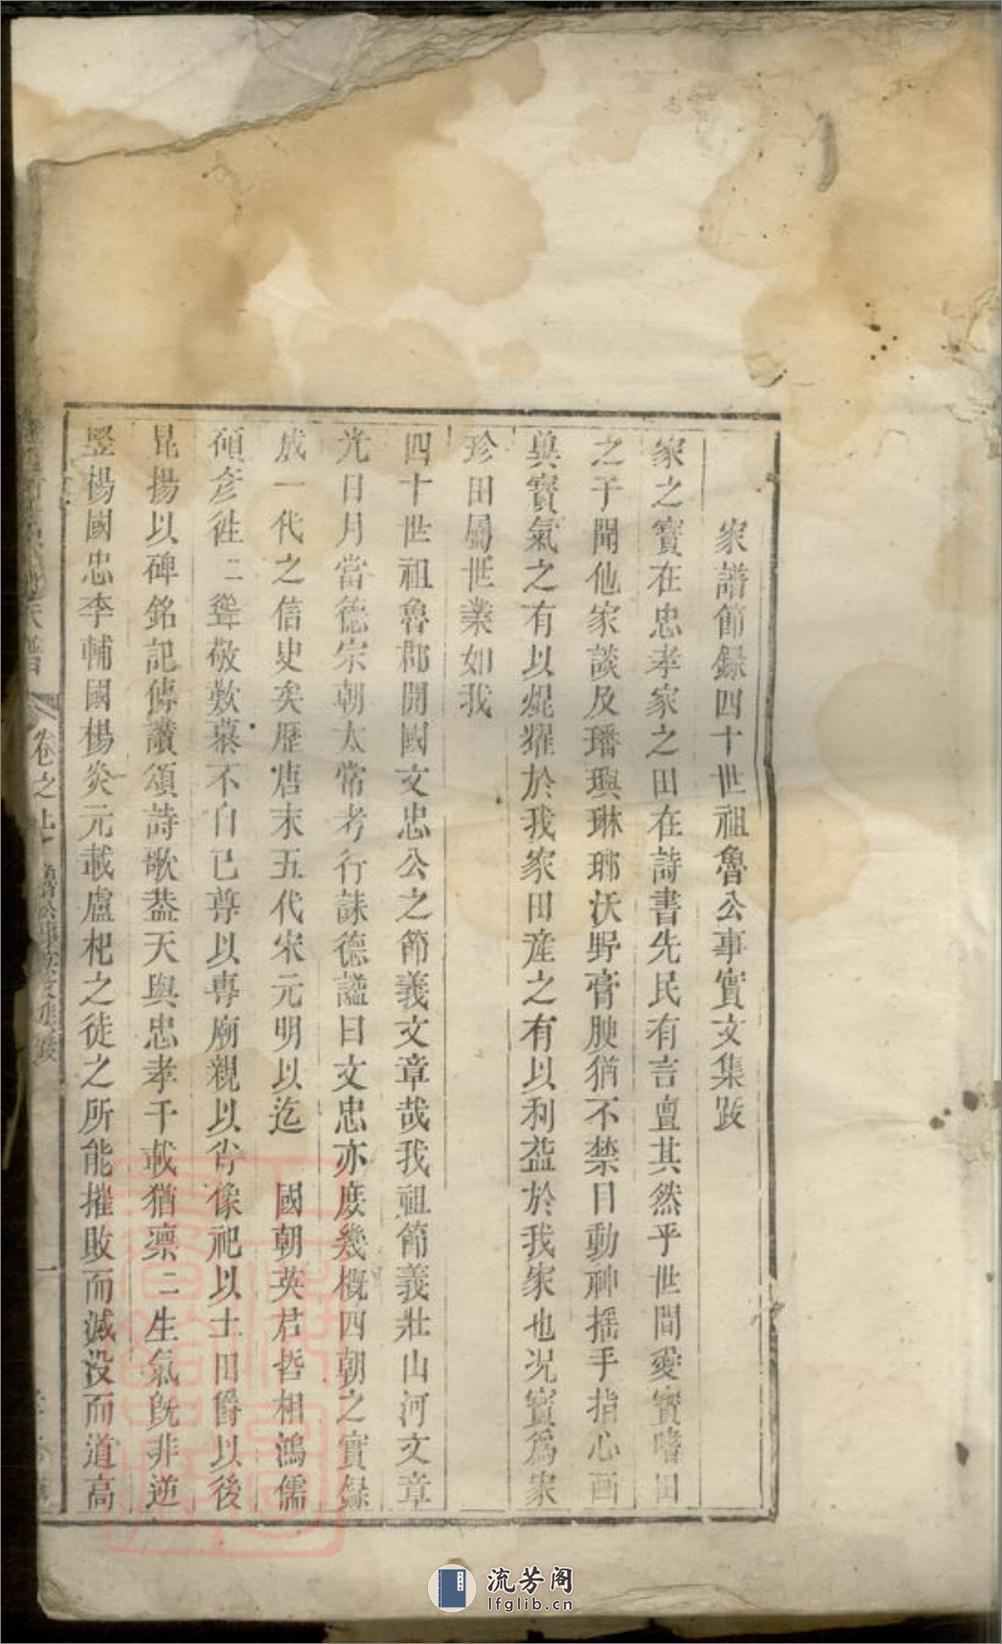 家譜節録四十世祖魯公事實文集跋
家之寳在忠孝家之田在詩書先民有言亶其然乎世間愛寳嗜田
之子聞他家談及璠璵琳瑯沃野膏腴猶不禁目動神揺手指心画
兾寳氣之有以焜燿於我家田產之有以利益於我家也况寳爲家
珍田屬世業如我
四十世祖魯郡開國文忠公之節義文章哉我祖節義壯山河文章
光日月當德宗朝太常考行誄德謚曰文忠亦庶幾概四朝之實録
成一代之信史矣歴唐末五代宋元明以迄　國朝英君哲相鴻儒
傾彦徃二聳敬歎慕不自已尊以專廟親以肖像祀以土田爵以後
昆揚以碑銘記傳讚頌詩歌葢天與忠孝千載猶凛二生氣旣非逆
竪楊國忠李輔國楊炎元載盧杞之徒之所能摧敗而滅没而道高
卷之上
一
流芳阁
lfglib.cn